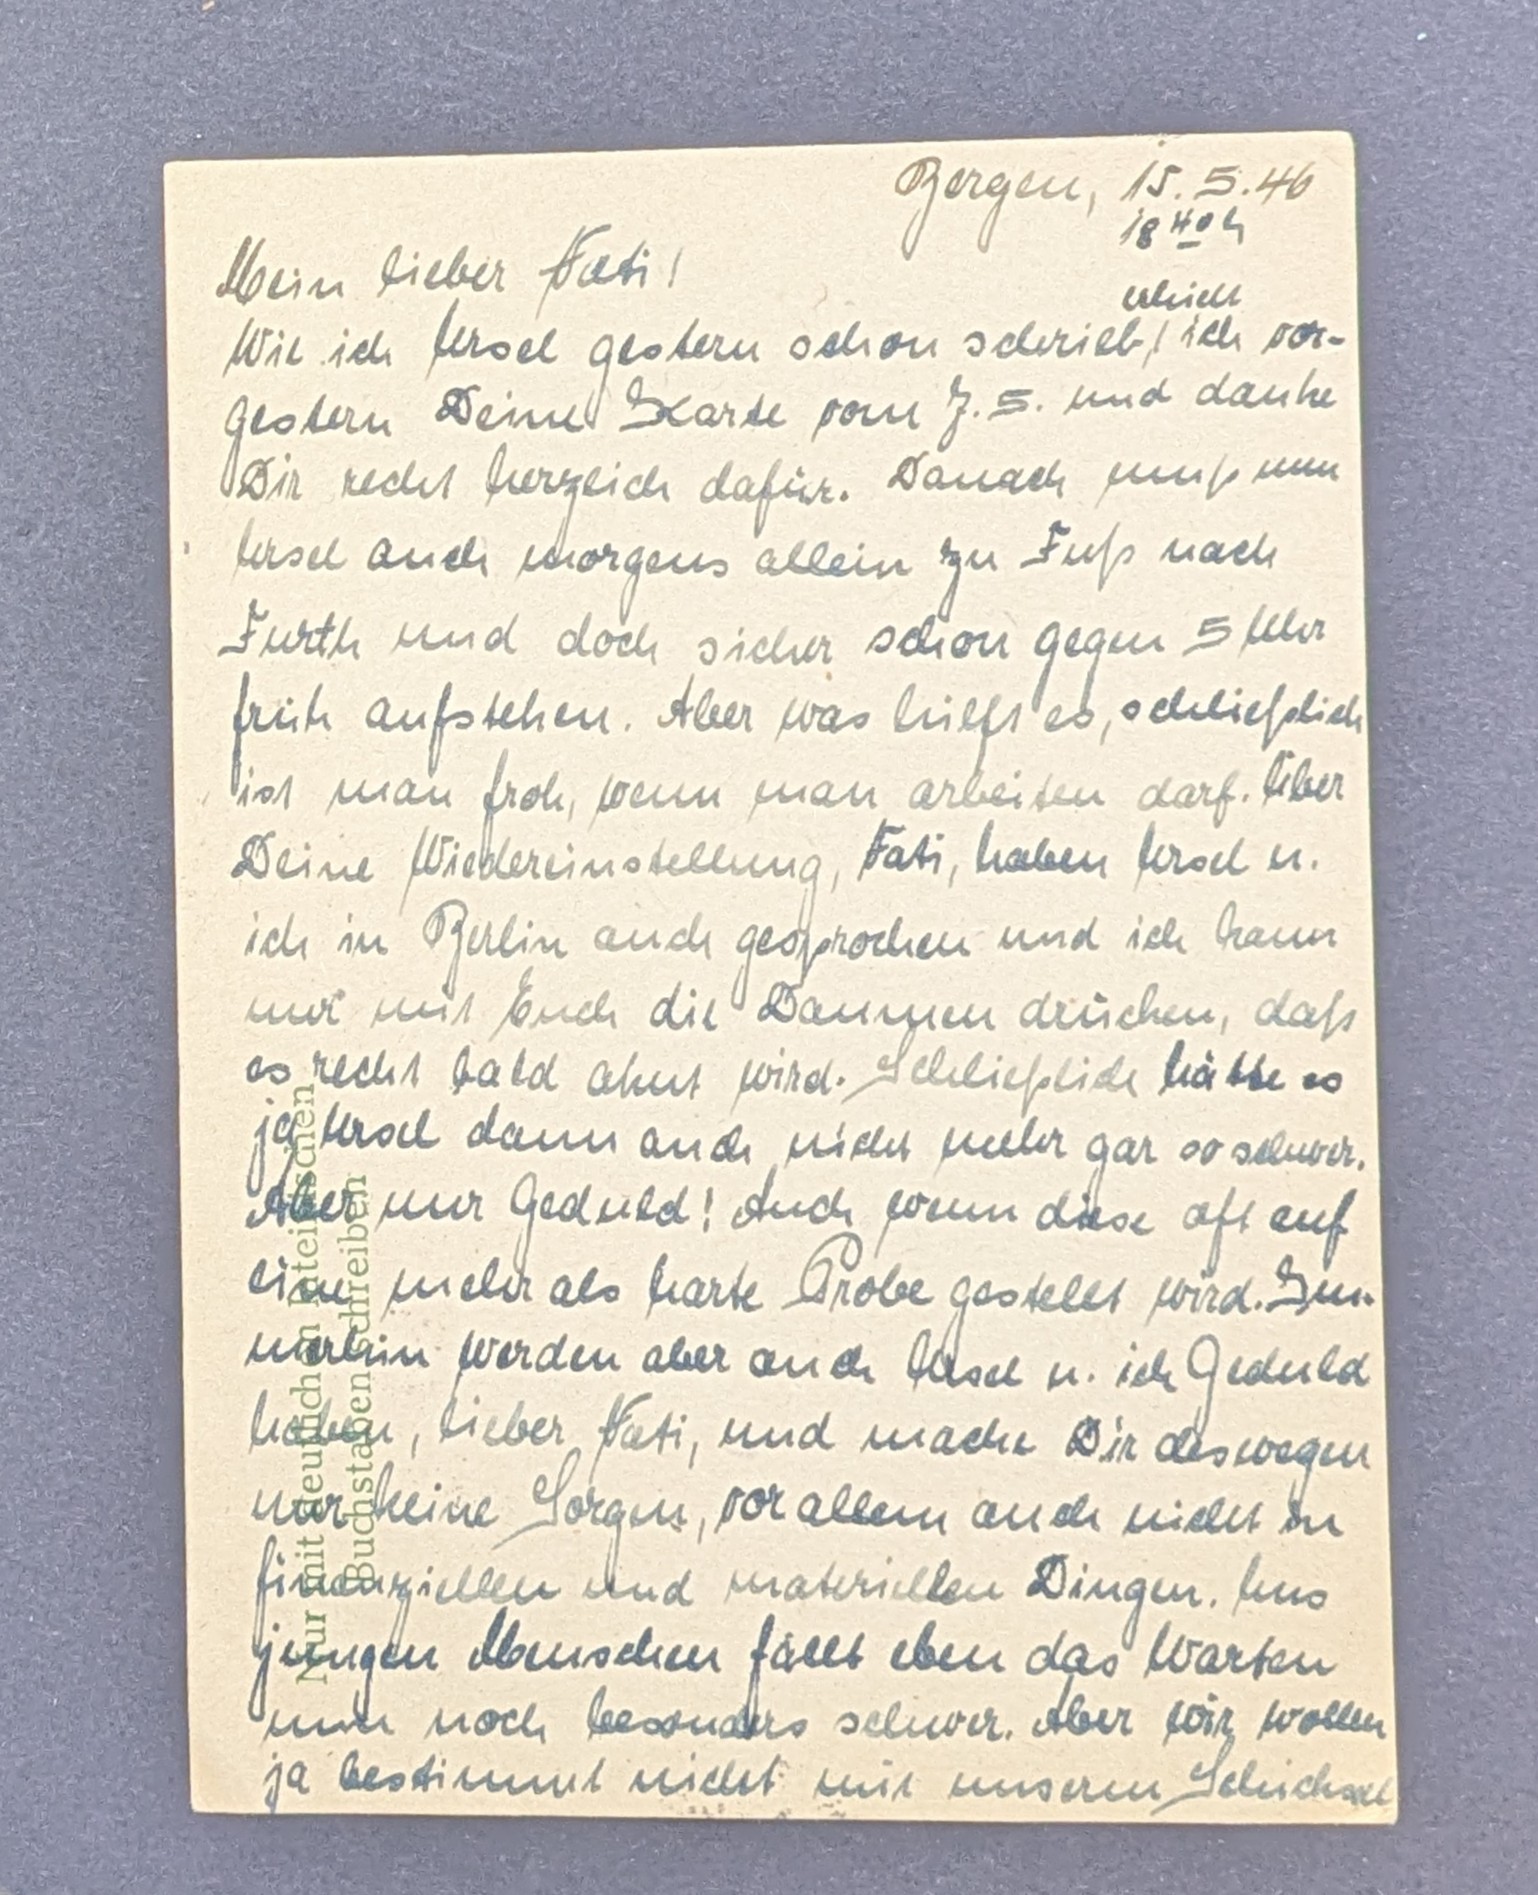 Bergen, 15.5.46
18 40 h
Mein lieber Vati!
erhielt
Wie ich Ursel gestern schon schrieb, ich vor-
gestern Deine Karte vom 7.5. und danke
Dir recht herzlich dafür. Danach muß nun
Ursel auch morgens allein zu Fuß nach
Furth und doch sicher schon gegen 5 Uhr
früh aufstehen. Aber was hilft es, schließlich
ist man froh, wenn man arbeiten darf. Über
Deine Wiedereinstellung, Vati, haben Ursel u.
ich in Berlin auch gesprochen und ich kann
nur mit Euch die Daumen drücken, daß
es recht bald wird. Schließlich hätte es
ja Ursel dann auch nicht mehr gar so schwer.
Aber nur Geduld! Auch wenn diese oft auf
eine mehr als harte Probe gestellt wird. Im-
merhin werden aber auch Ursel u. ich Geduld
haben, lieber Vati, und mache Dir deswegen
nur keine Sorgen, vor allem auch nicht in
finanziellen und materiellen Dingen. Uns
jungen Menschen fällt eben das Warten
nun noch besonders schwer. Aber wir wollen
ja bestimmt nicht mit unserem Schicksal
Nur mit deutlichen lateinischen
Buchstaben schreiben